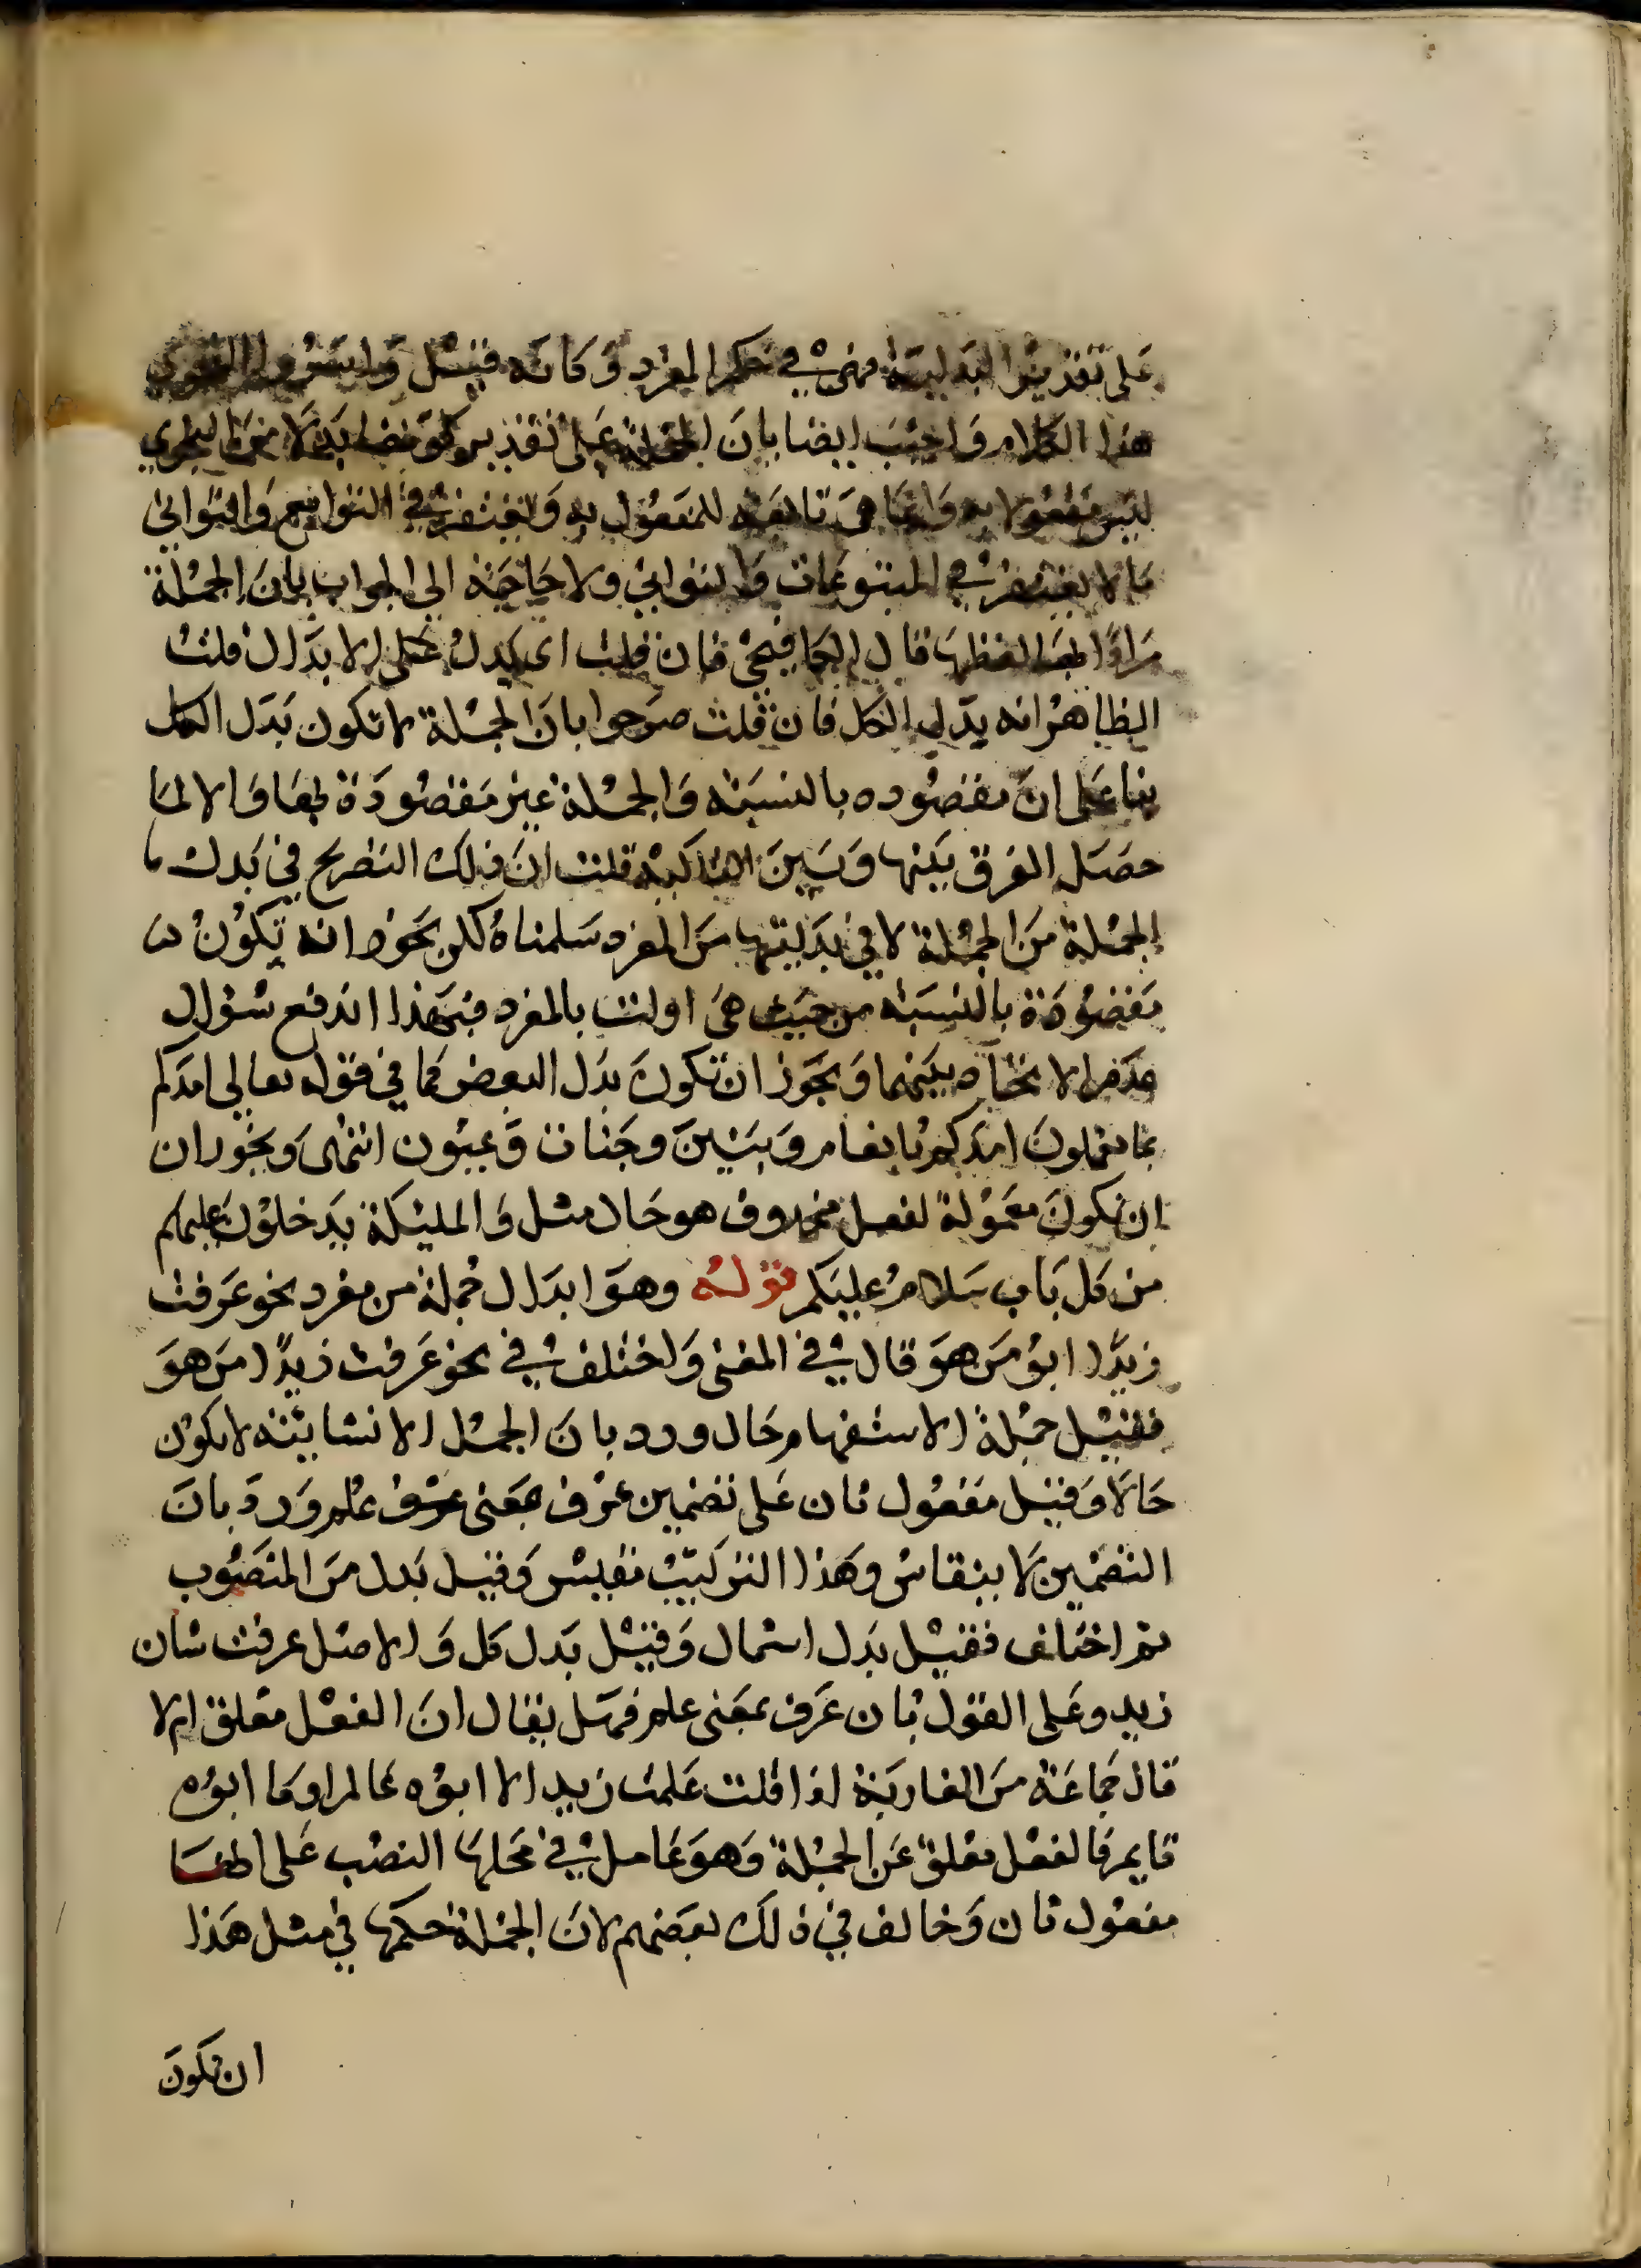 على تقدير البدلية فهي في حكم المفرد وكانه قيل واسروا النجوى
هذا الكلام واجيب ايضا بان الجملة على تقدير كونها بدلا من النجوى
ليس مفعولا به وانما هي تابعة للمفعول به ويغتفر في التوابع والثواني
ما لا يغتفر في المتبوعات والثواني ولا حاجة الى الجواب بان الجملة
مرادا بها لفظها قال الكافيجي فان قلت اى بدل على الابدال قلت
الظاهر انه بدل الكل فان قلت صرحوا بان الجملة لا تكون بدل الكل
بنا على ان مقصوده بالنسبة والجملة غير مقصودة بها والا لما
حصل الفرق بينها وبين التاكيد قلت ان ذلك التصريح في بدل
الجملة من الجملة لا في بدليتها من المفرد سلمناه لكن يجوز انه تكون
مقصودة بالنسبة من حيث هى اولت بالمفرد فبهذا اندفع سؤال
عدم الانحياز بينهما ويجوز ان تكون بدل البعض كما في قوله تعالى امدكم
بما تعملون امدكم بانعام وبنين وجنات وعيون انتهى ويجوز ان
ان تكون معمولة لفعل محذوف هو حال مثل والمليكة يدخلون عليهم
من كل باب سلام عليكم قوله وهو ابدال جملة من مفرد نحو عرفت
زيدا ابو من هو قال في المغنى واختلف في نحو عرفت زيدا من هو
فقيل جملة الاستفهام حال ورد بان الجمل الانشايئة لا تكون
حالا وقيل مفعول ثان على تضمين عرف معنى علم ورد بان
التضمين لا ينقاس وهذا التركيب مقيس وقيل بدل من المنصوب
ثم اختلف فقيل بدل اشتمال وقيل بدل كل والاصل عرفت شان
زيد وعلى القول بان عرف بمعنى علم فهل يقال ان الفعل معلق ام لا
قال جماعة من المغاربة اذا قلت علمت زيد الا ابوه عالم او ما ابوه
قايم فالفعل معلق عن الجملة وهو عامل في محلها النصب على انها
مفعول ثان وخالف في ذلك بعضهم لان الجملة حكمها في مثل هذا
ان تكون